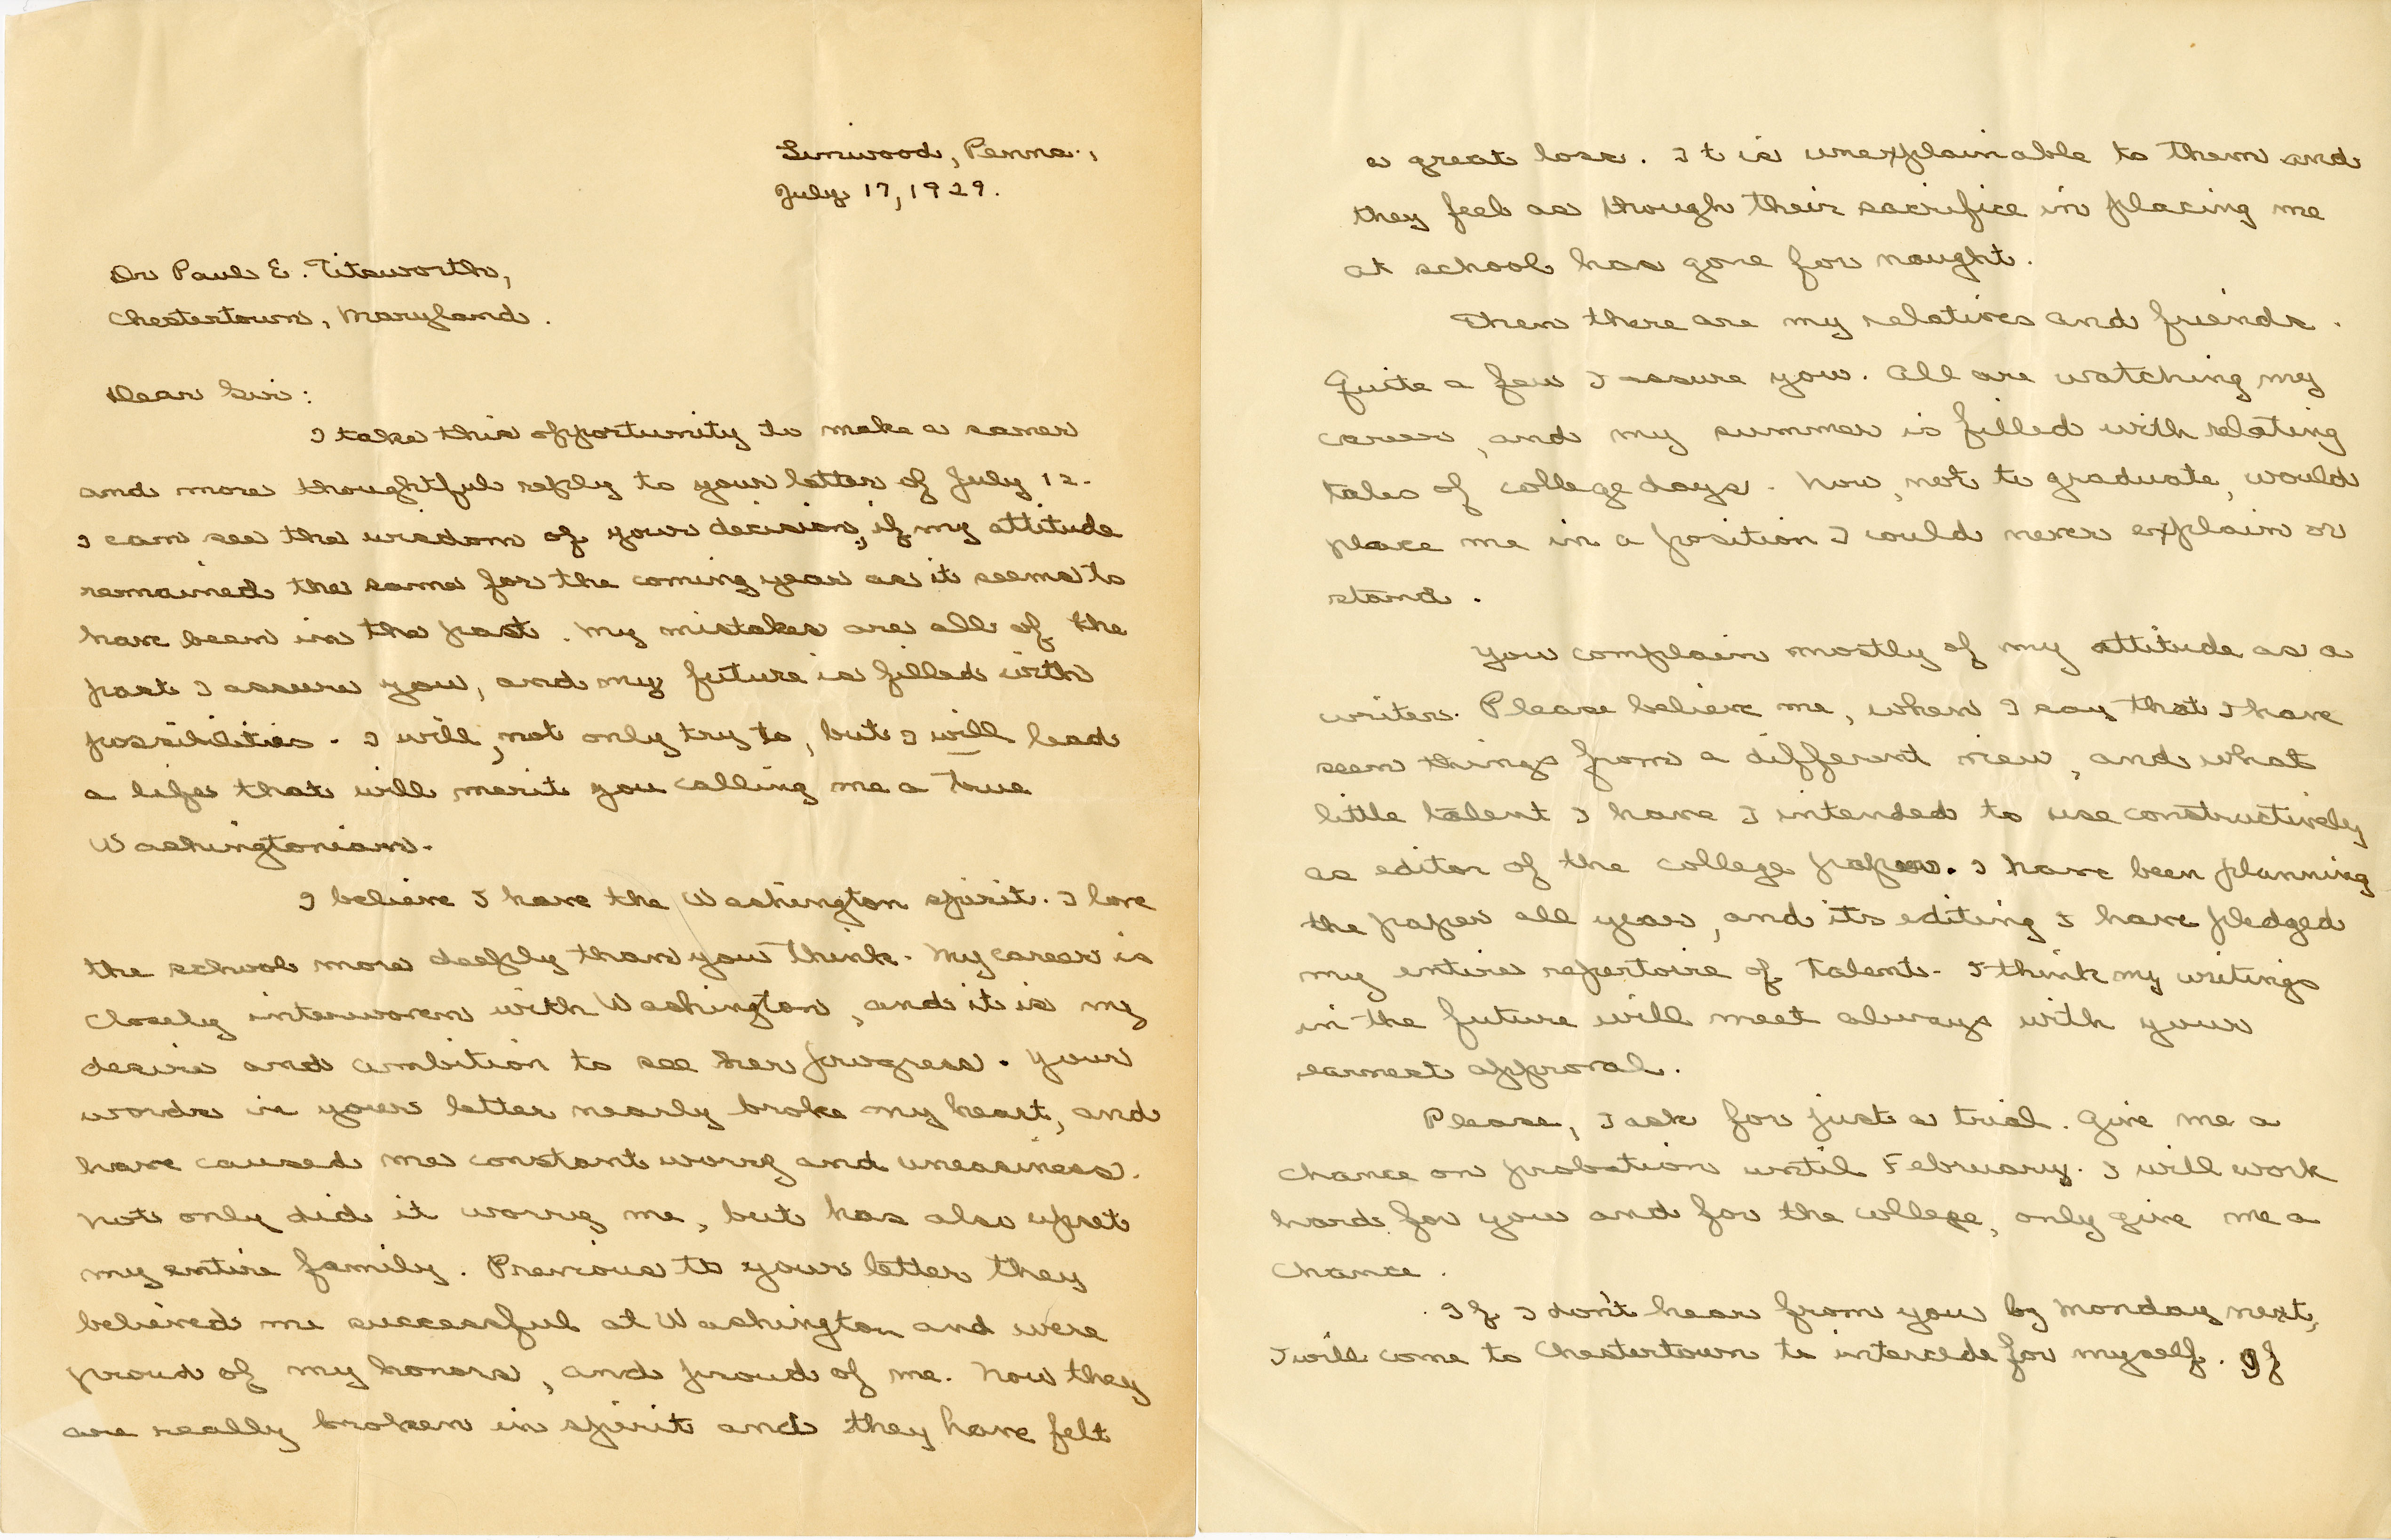 Linwood, Penna.,
July 17, 1929.
Dr Paul E. Titsworth,
Chestertown, Maryland.
Dear Sir:
I take this opportunity to make a saner
and more thoughtful reply to your letter of July 12.
I can see the wisdom of your decision, if my attitude
remained the same for the coming year as it seems to
have been in the past. My mistakes are all of the
past I assure you, and my future is filled with
possibilities. I will, not only try to, but I will lead
a life that will merit you calling me a true
Washingtonian.
I believe I have the Washington spirit. I love
the school more deeply than you think. My career is
closely interwoven with Washington, and it is my
desire and ambition to see her progress. Your
words in your letter nearly broke my heart, and
have caused me constant worry and uneasiness.
Not only did it worry me, but has also upset
my entire family. Previous to your letter they
believed me successful at Washington and were
proud of my honors, and proud of me. Now they
are really broken in spirit and they have felt
a great loss. It is unexplainable to them and
they feel as though their sacrifice in placing me
at school has gone for nought.
Then there are my relatives and friends.
Quite a few I assure you. All are watching my
career, and my summer is filled with relating
tales of college days. Now, not to graduate, would
place me in a position I could never explain or
stand.
You complain mostly of my attitude as a
writer. Please believe me, when I say that I have
seen things from a different view, and what
little talent I have I intended to use constructively
as editor of the college paper. I have been planning
the paper all year, and its editing I have pledged
my entire repertoire of talent. I think my writings
in the future will meet always with your
earnest approval.
Please, I ask for just a trial. Give me a
chance on probation until February. I will work
hard for you and for the college, only give me a
chance.
If I don't hear from you by Monday next,
I will come to Chestertown to intercede for myself. If